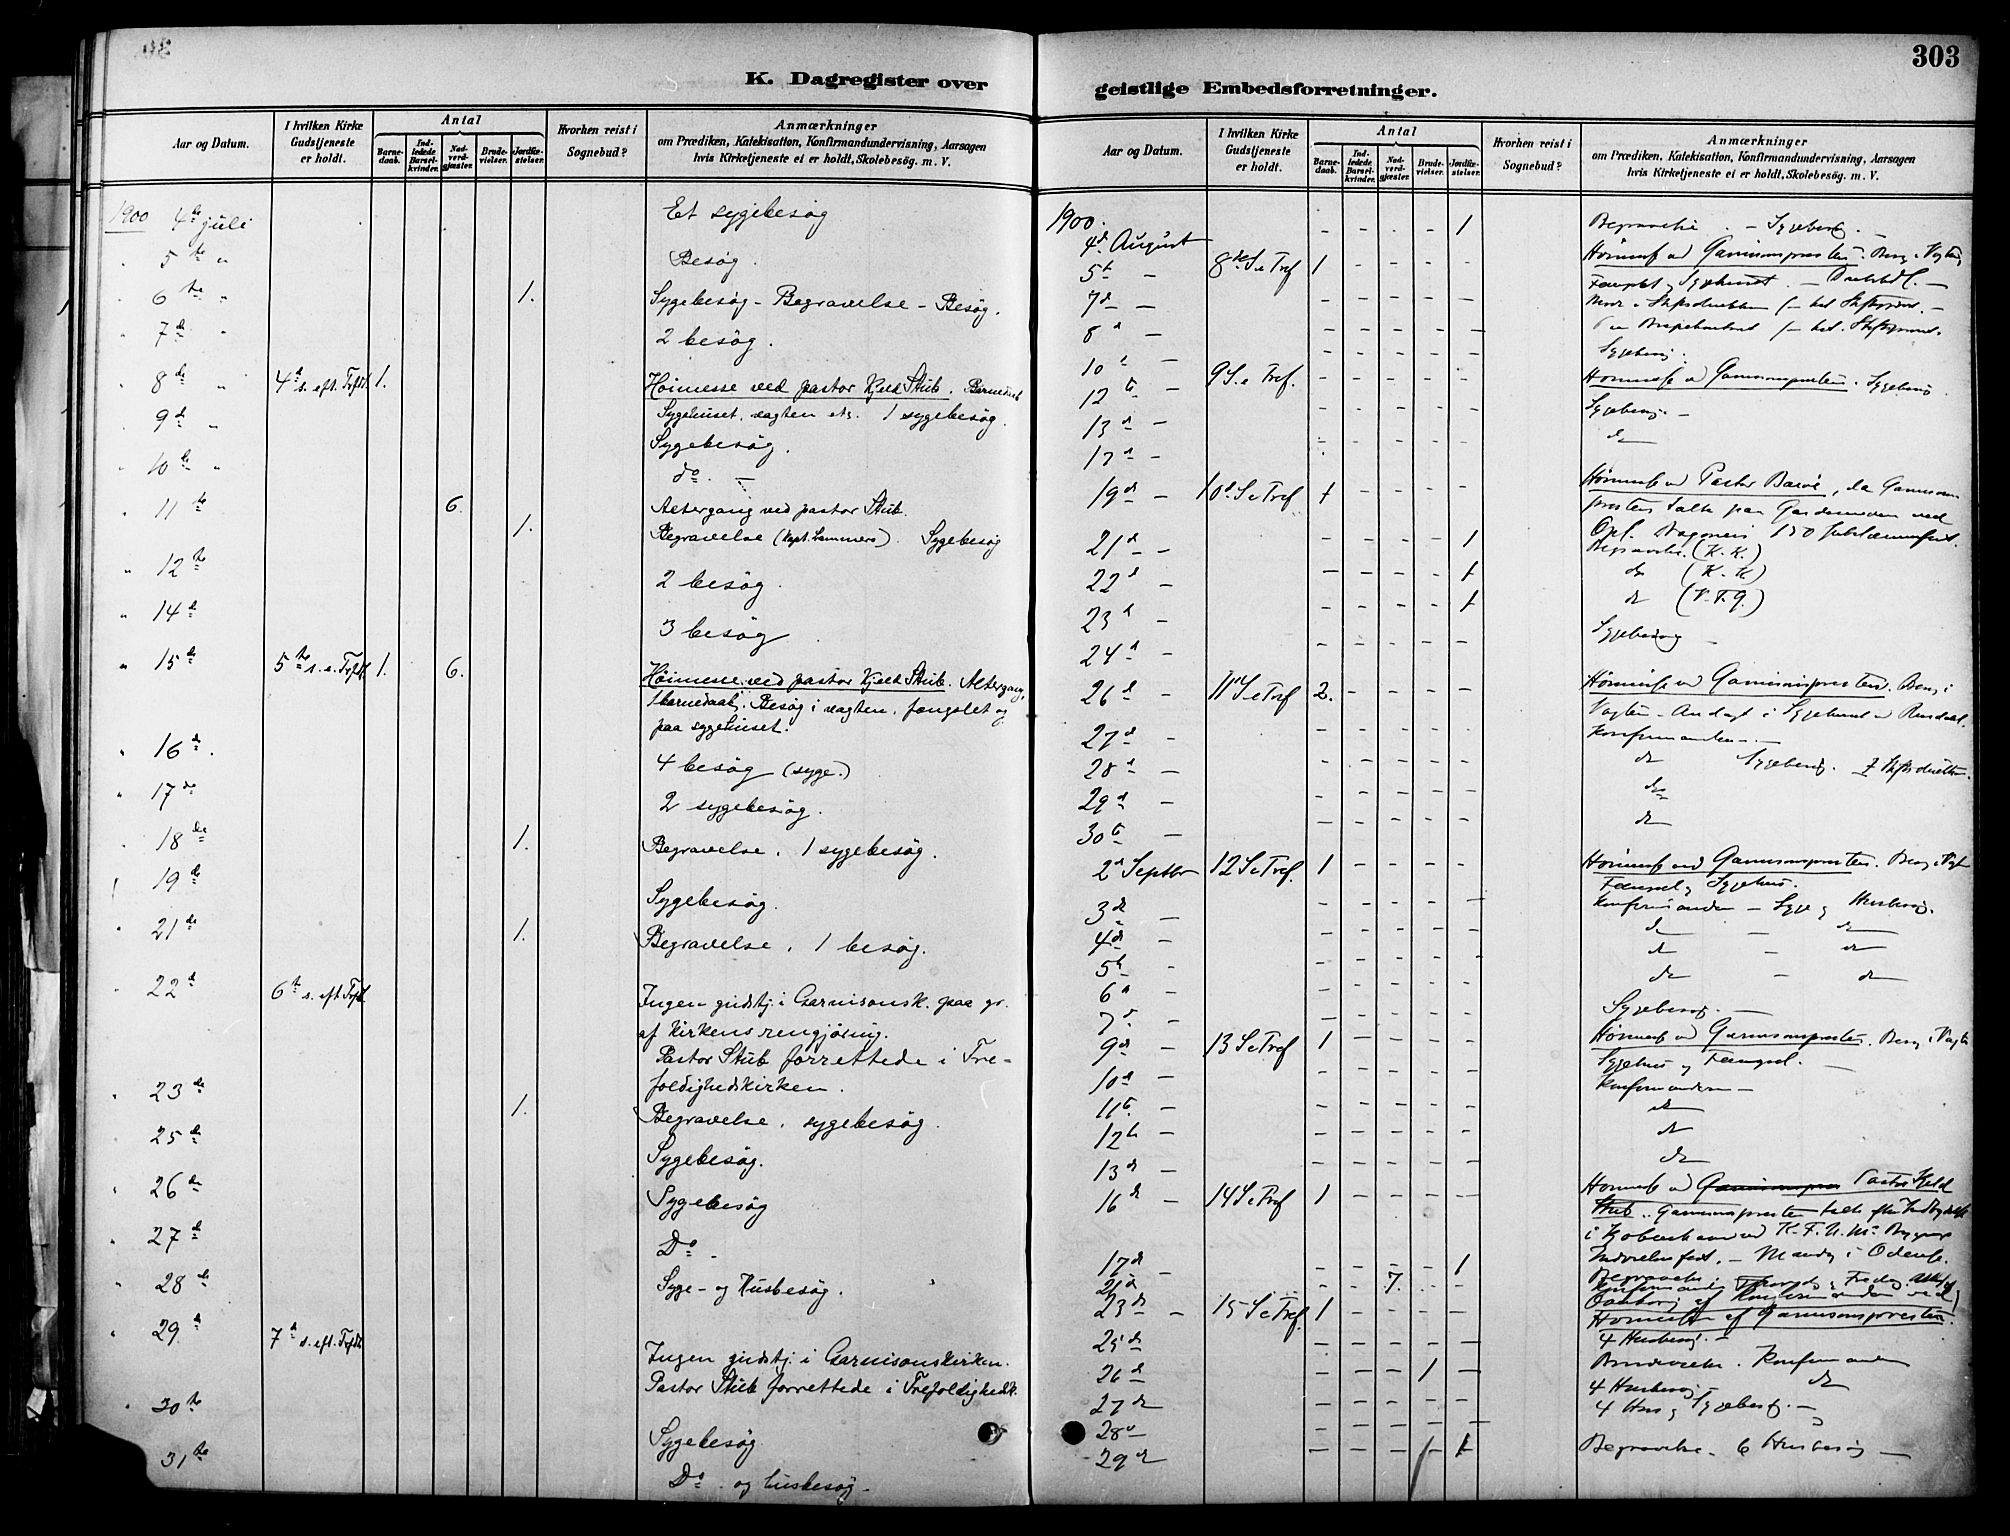 303
K. Dagregister over
Aar og Datum.
I hvilken Kirke Gudstjeneste er holdt.
Antal
Barnedaab.
Indledede Barselkvinder.
Nadverdgjæster.
Brudevielser.
Jordfæstelser.
Hvorhen reist i Sognebud?
Anmærkninger
om Prædiken, Katekisation, Konfirmandundervisning, Aarsagen
hvis Kirketjeneste ei er holdt, Skolebesög. m. V.
1900 4de juli Et sygebesøg
" 5te " Besøg.
" 6te " 1. Sygebesøg - Begravelse - Besøg.
" 7de " 2 besøg.
" 8de " 4de s. eft. Trfdt. 1. Høimesse ved pastor Kjeld Stub. Barnedaab
Sygehuset, vagten etc. 1 sygebesøg.
" 9de " Sygebesøg.
" 10de " do. —
" 11te 6. Altergang ved pastor Stub.
1. Begravelse (Kapt. Lammers). Sygebesøg
" 12te 2 besøg.
" 14de 3 besøg.
" 15de 5te s. e. Trfdt. 1. 6. Høimesse ved pastor Kjeld Stub. Altergang,
barnedaab. Besøg i vagten, fængslet og
paa sygehuset.
" 16de. 4 besøg (syge.)
" 17de 2 sygebesøg.
" 18de 1. Begravelse. 1 sygebesøg.
" 19de Sygebesøg.
" 21de 1. Begravelse. 1 besøg.
" 22de 6te s. eft Trfdt. Ingen gudstj. i Garnisonsk. paa gr.
af kirkens rengjøring.
Pastor Stub forrettede i Tre-
foldighedskirken.
" 23de 1. Begravelse. sygebesøg.
" 25de Sygebesøg.
" 26de Sygebesøg
" 27de Do -
" 28de Syge- og Husbesøg.
" 29de 7de s. eft. Trfdt. Ingen gudstj. i Garnisonskirken.
Pastor Stub forrettede i Trefoldighedsk.
" 30te Sygebesøg
31te Do - og husbesøg -
geistlige Embedsforretninger.
Aar og Datum.
I hvilken Kirke Gudstjeneste er holdt.
Antal
Barnedaab.
Indledede Barselkvinder.
Nadverdgjæster.
Brudevielser.
Jordfæstelser.
Hvorhen reist i Sognebud?
Anmærkninger
om Prædiken, Katekisation, Konfirmandundervisning, Aarsagen
hvis Kirketjeneste ei er holdt, Skolebesög. m. V.
1900.
4de August - - - - 1 Begravelse. - Sygebesøg -
5te - 8de S e Tref 1 - - - - Høimesse ved Garnisonspresten. Besøg i Vagten,
Fængslet og Sygehuset. -
7de - - - - - -
8de - - - - - -
10de - - - - - - Sygebesøg.
12te - 9 S. e Tref. - - - - - Høimesse ved Garnisonspresten. Sygebesøg
13de - - - - - - Sygebesøg. -
17de - - - - - - do
19de - 10de S e Tref 1 - - - - Høimesse ved Pastor , da Garnisons-
presten talte paa Gardermoen ved
Opl. Dragoners 150 Jubilæumsfest.
21de - - - - - 1 Begravelse. (K. K.)
22de - - - - - 1 do (K. K)
23de - - - - - 1 do (V. F. G.)
24de - - - - - - Sygebesøg -
26de - 11te S e Tref 2. - - - - Høimesse ved Garnisonspresten. Besøg i
Vagten - Andagt i Sygehuset
27de - - - - - - Konfirmanden -.
28de - - - - - - do Sygebesøg.
29de - - - - - - do
30te - - - - - - do
2de Septbr 12 S e Tref. 1 - - - - Høimesse ved Garnisonspresten. Besøg i Vagt
Fængsel og Sygehus.
3de - - - - - - Konfirmanden - Syge og Husbesøg.
4de - - - - - - do - do
5te - - - - - - do - do
6te - - - - - - do - do
7de - - - - - - Sygebesøg. -
9de - 13 S e Tref 1 - - - - Høimesse ved Garnisonspresten. Besøg i Vagten
Sygehus og Fængsel. -
10de - - - - - - Konfirmanden -
11te - - - - - - do
12te - - - - - - do
13de - - - - - - do
16de - 14 S e Tref 1 - - - - Høimesse ved Pastor Kjeld
Stub. Garnisonspresten talte efter Indbydelse
i Kjøbenhavn ved K. F. U. M.s
Indvielsesfest. - Mandag i Odense.
17de - - - - - 1 Begravelse.
21de - - 7. - - Konfirmand. Torsdag & Fredag.
23de - 15 S e Tref. 1 - - - - Høimesse af Garnisonspresten.
25de - - - - - 4 Husbesøg. -
26de - - - 1 - Brudevielse. Konfirmanden
27de - - - - - 4 Husbesøg do
28de - - - - - 4 Hus og Sygebesøg. -
29de - - - - 1 Begravelse. 6 Husbesøg -